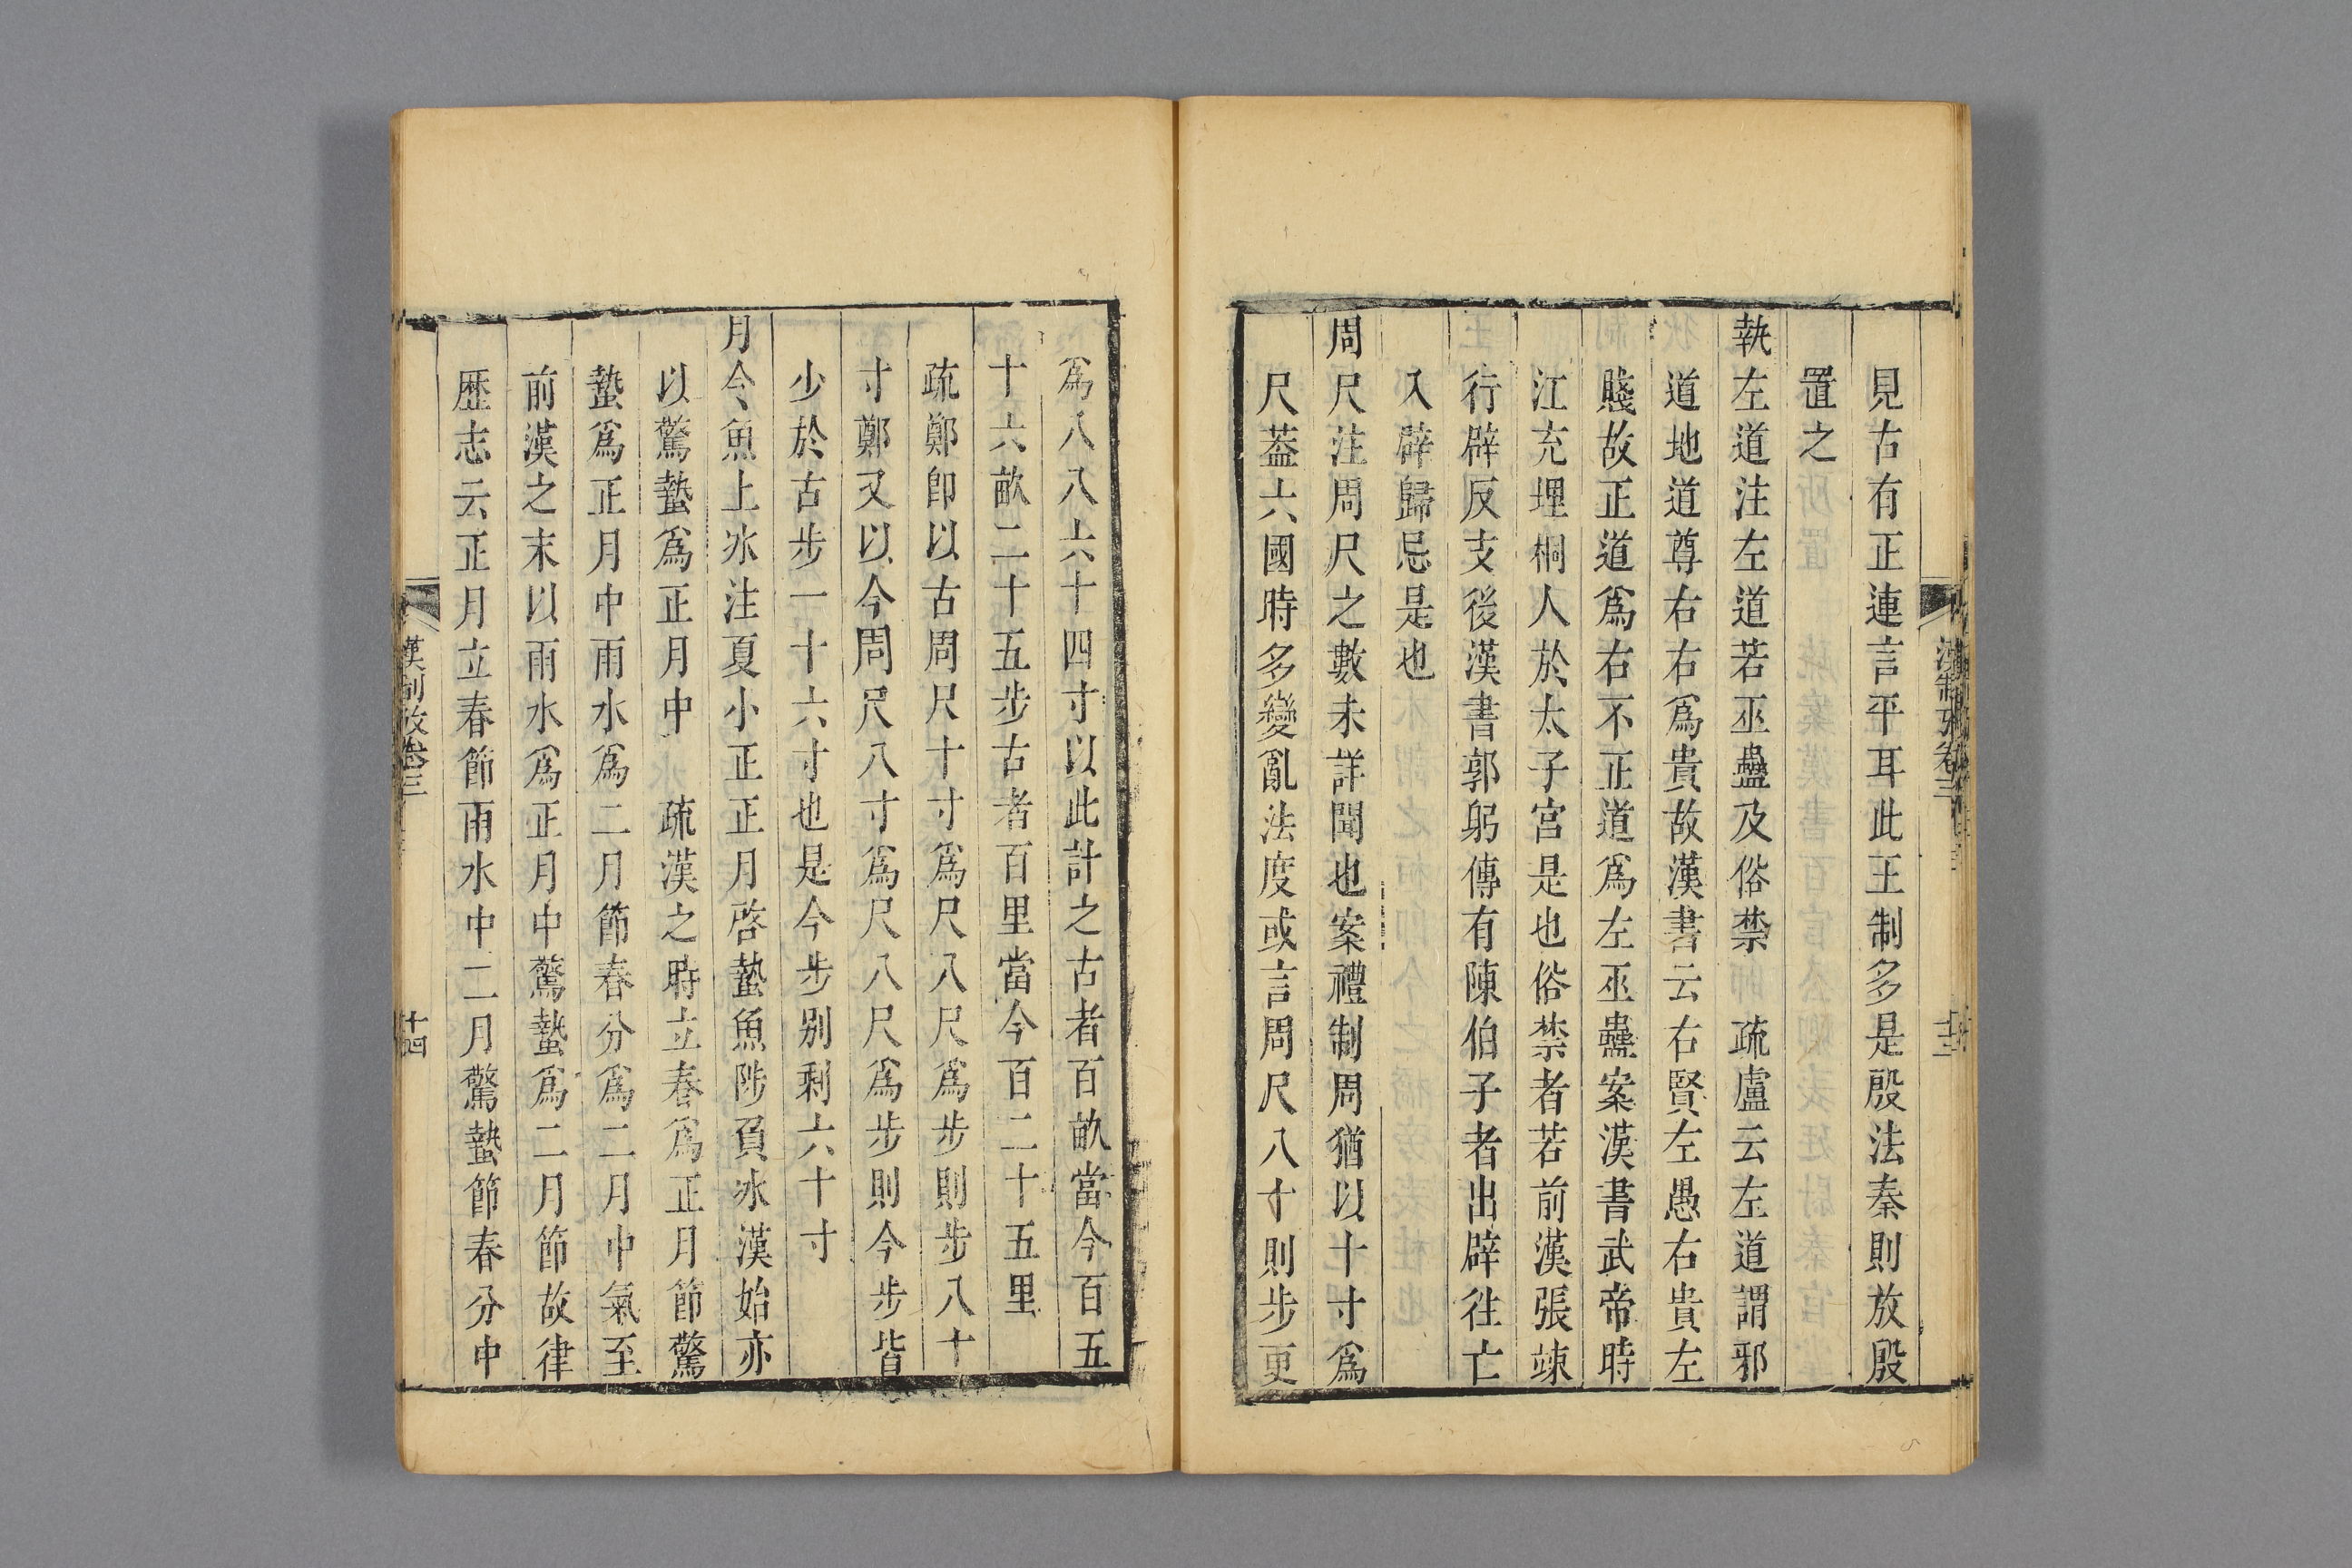 見古有正連言平耳此王制多是殷法秦則放殷
置之
執左道注左道若巫蠱及俗禁　疏盧云左道謂邪
道地道尊右右爲貴故漢書云右賢左愚右貴左
賤故正道爲右不正道爲左巫蠱案漢書武帝時
江充埋桐人於太子宮是也俗禁者若前漢張竦
行辟反支後漢書郭躬傳有陳伯子者出辟往亡
入辟歸忌是也
周尺注周尺之數未詳聞也案禮制周猶以十寸爲
尺葢六國時多變亂法度或言周尺八寸則步更
爲八八六十四寸以此計之古者百畝當今百五
十六畝二十五步古者百里當今百二十五里
疏鄭卽以古周尺十寸爲尺八尺爲步則步八十
寸鄭又以今周尺八寸爲尺八尺爲步則今步皆
少於古步一十六寸也是今步别剩六十寸
月令魚上冰注夏小正正月啓蟄魚陟負冰漢始亦
以驚蟄爲正月中　疏漢之時立春爲正月節驚
蟄爲正月中雨水爲二月節春分爲二月中氣至
前漢之末以雨水爲正月中驚蟄爲二月節故律
歴志云正月立春節雨水中二月驚蟄節春分中
漢制攷卷三
十四